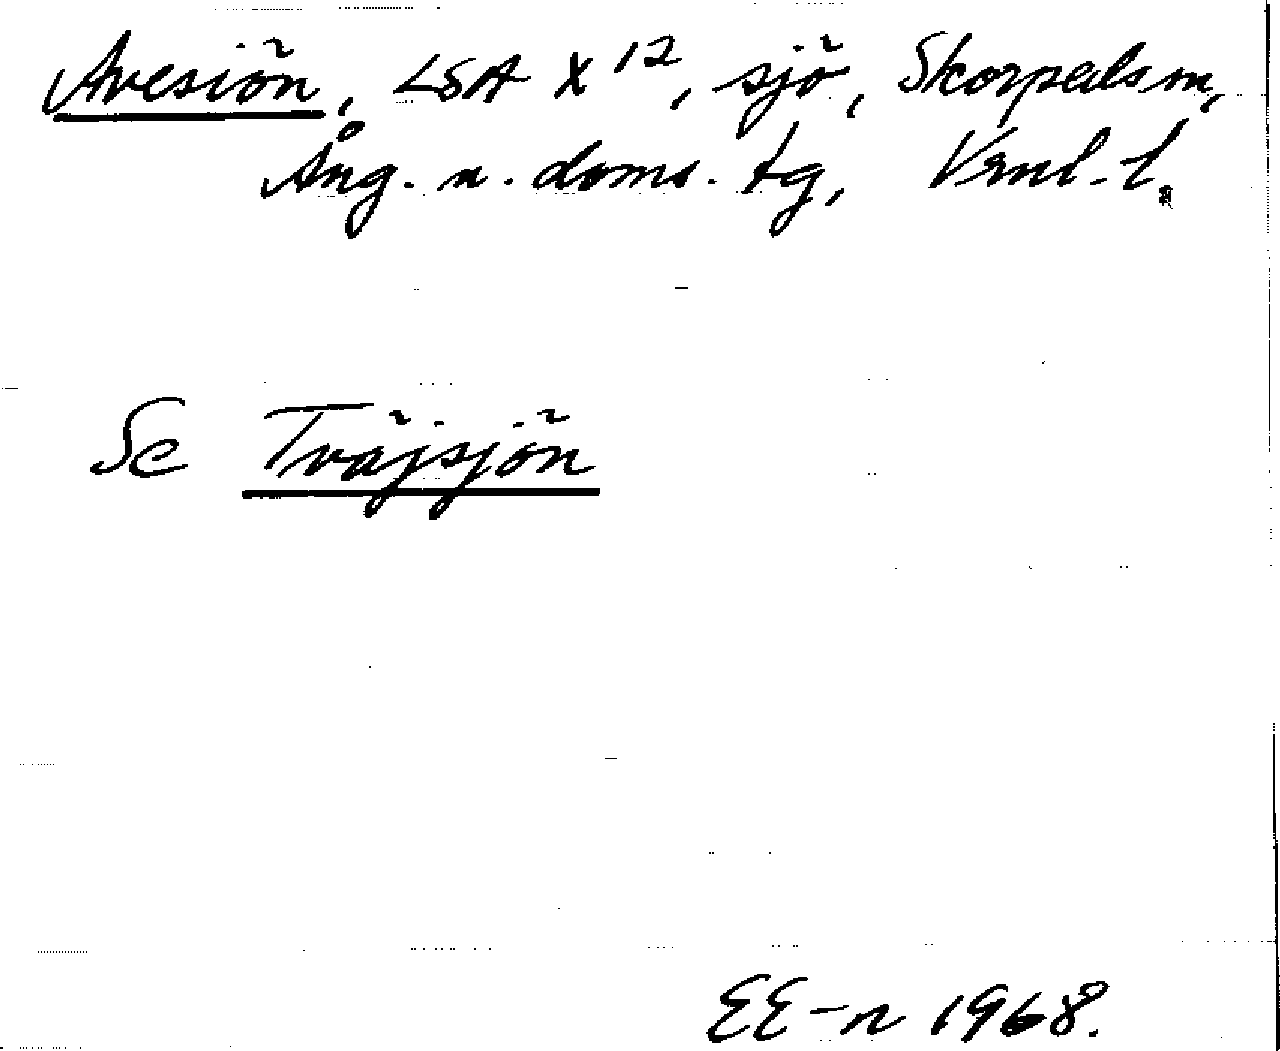 Avesiön, LSA X 12, sjö, Skorpedsm,
Ång. n. doms. tg, Vrnl-l.
Se Tväjsjön
EE-n 1968.